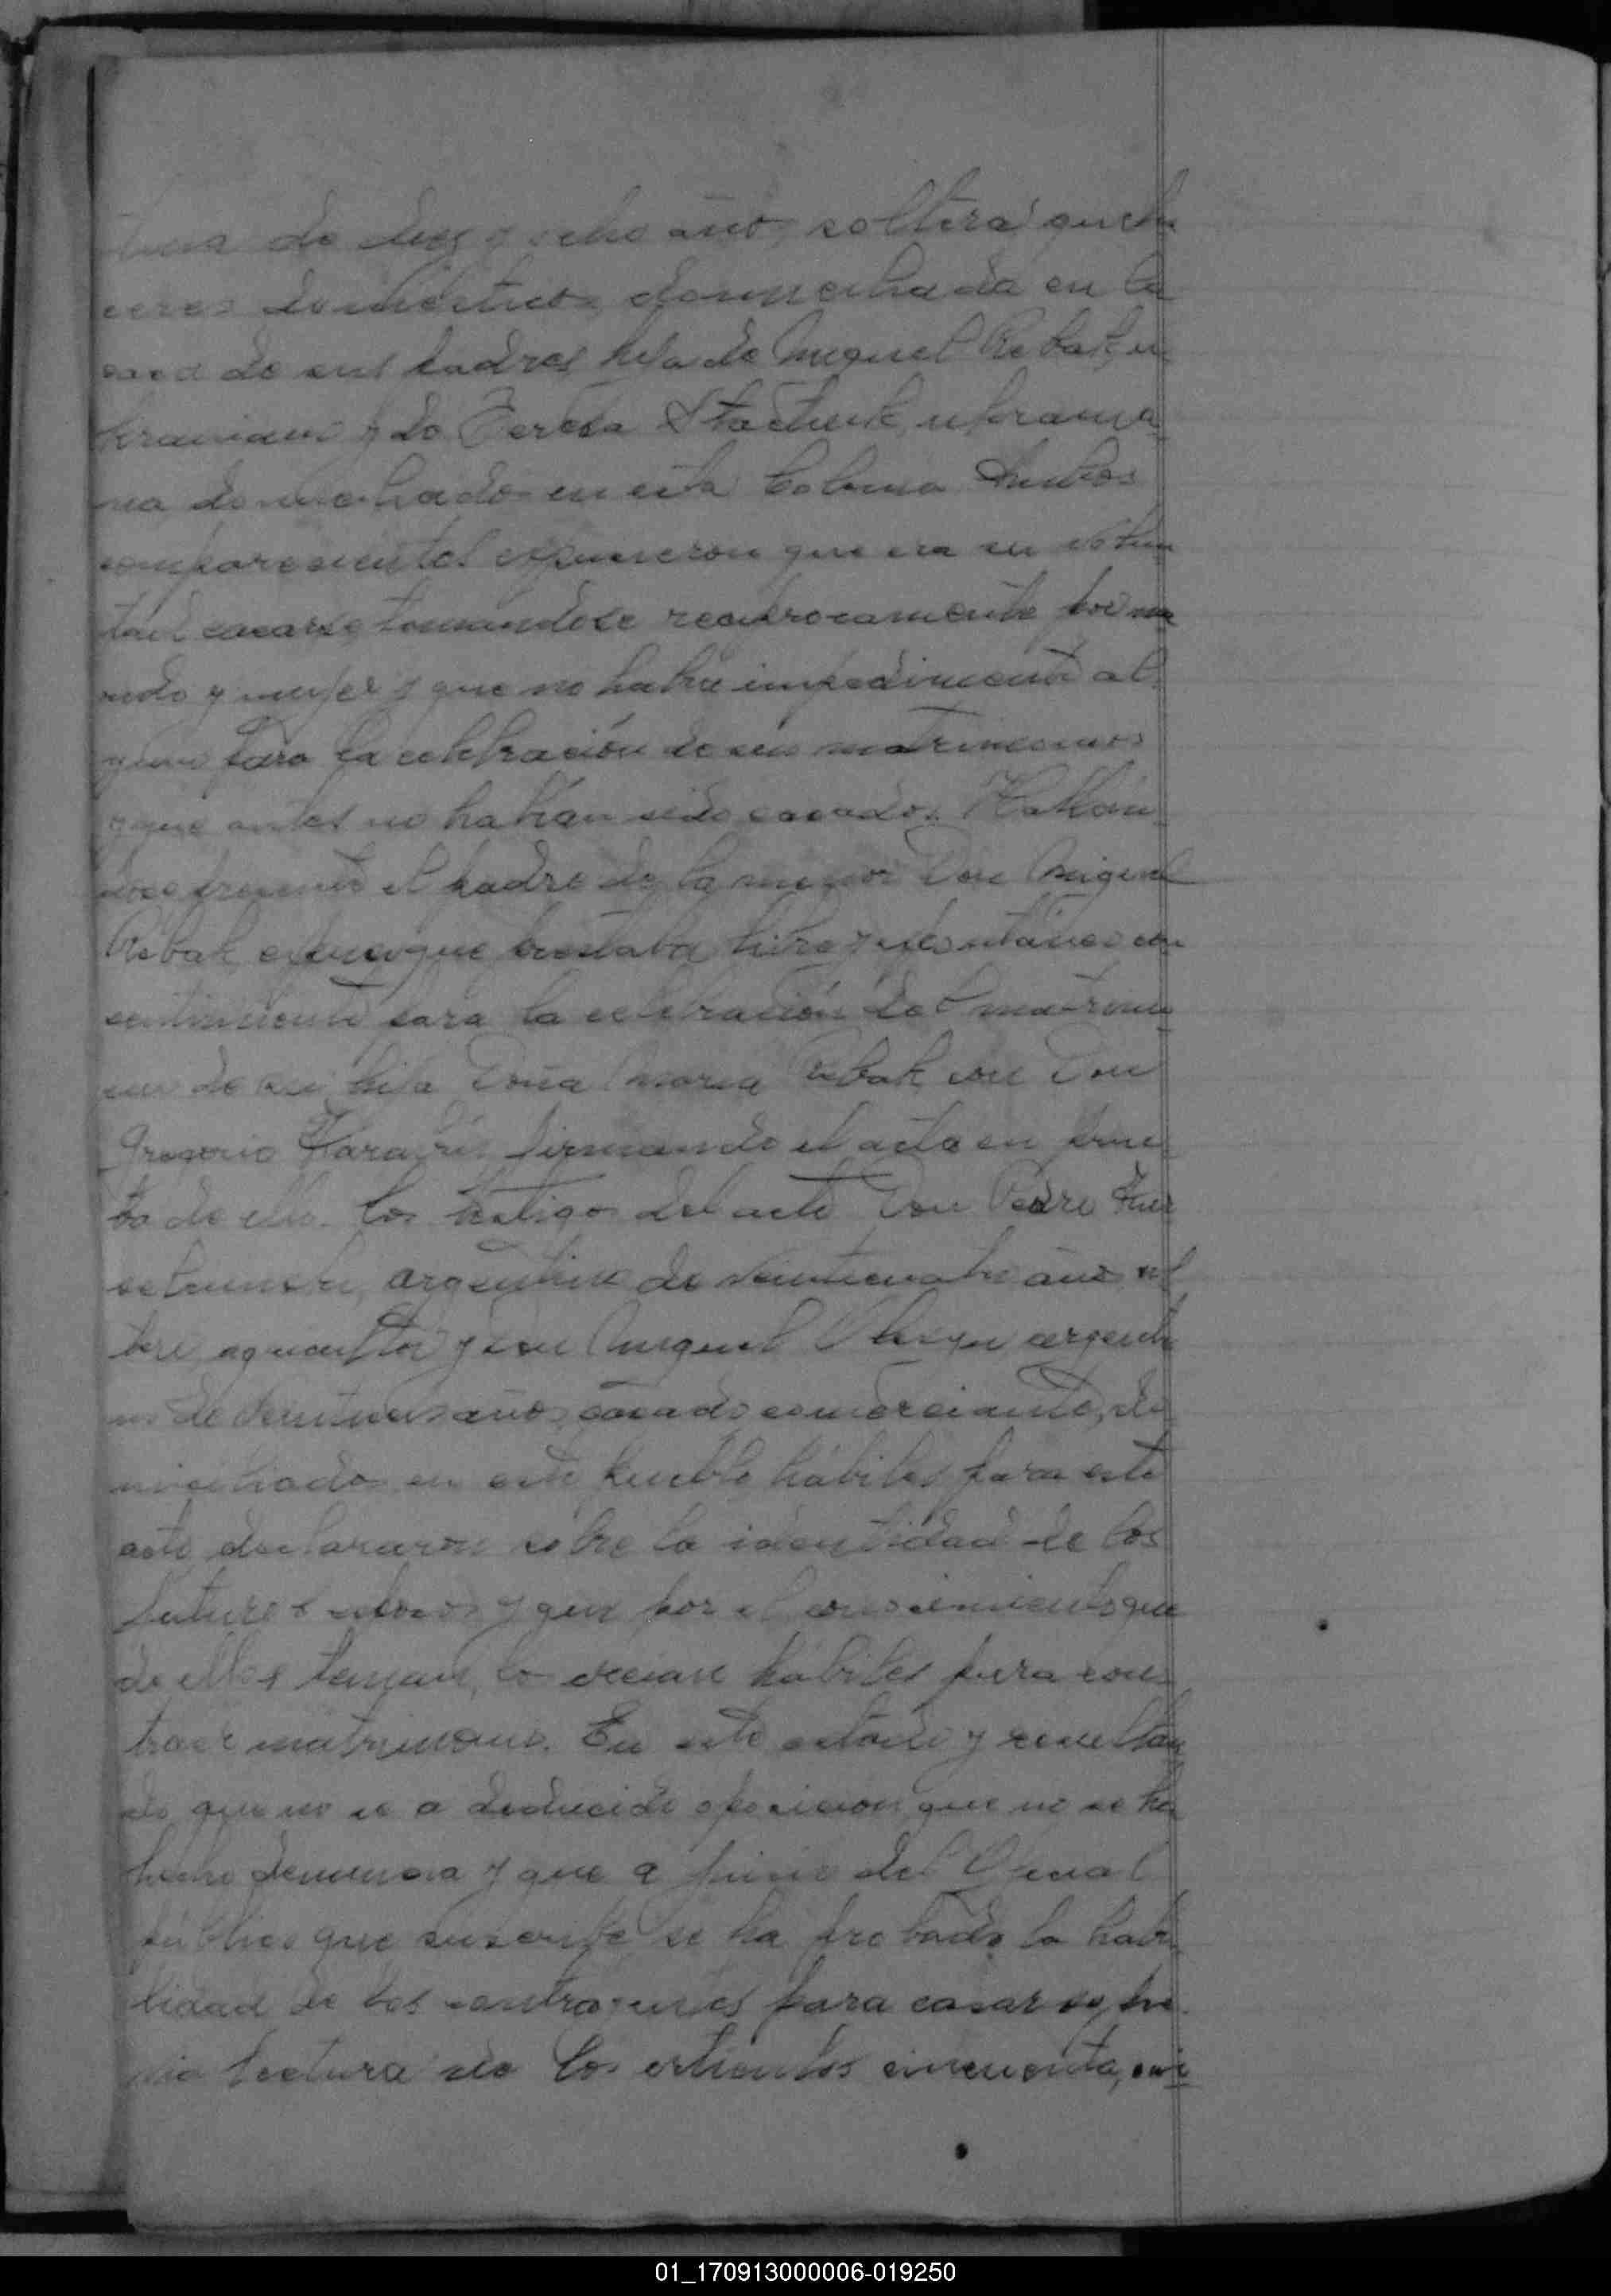 tina de diez y ocho años, soltera, queha
ceres domésticos, domiciliada en la
casa de sus padres, hija de Miguel Rebak, u
kraniano y de Teresa ukrania
na, domiciliados en esta Colonia. Ambos
comparecientes expusieron que era su volun
tad casarse, tomandose reciprocamente por ma
rido y mujer y que no había impedimento al
guno para la celebración de sus matrimonios
y que antes no habían sido casados. Hallán
dose presente el padre de la menor Don Miguel
Rebak expuso que prestaba libre y espontáneo con
sentimiento para la celebración del matrimo
nio de su hija Doña Maria Rebak con Don
Gregorio firmando el acta en prue
ba de ello. Los testigos del acto Don Pedro
argentino de veinticuatro años, sol
tero, agricultor y Don Miguel argenti
no de años, casado, comerciante, do
miciliados en este pueblo hábiles para este
acto declararon sobre la identidad de los
futuros esposos y que por el conocimiento que
de ellos tenian, los creian hábiles para con
traer matrimonio. En este estado y resultan
do que no se a deducido oposicion que no se ha
hecho denuncia y que a juicio del Oficial
público que suscribe se ha probado la habi
lidad de los contrayentes para casarse, pre
via lectura de los articulos cincuenta, cin
01_170913000006-019250